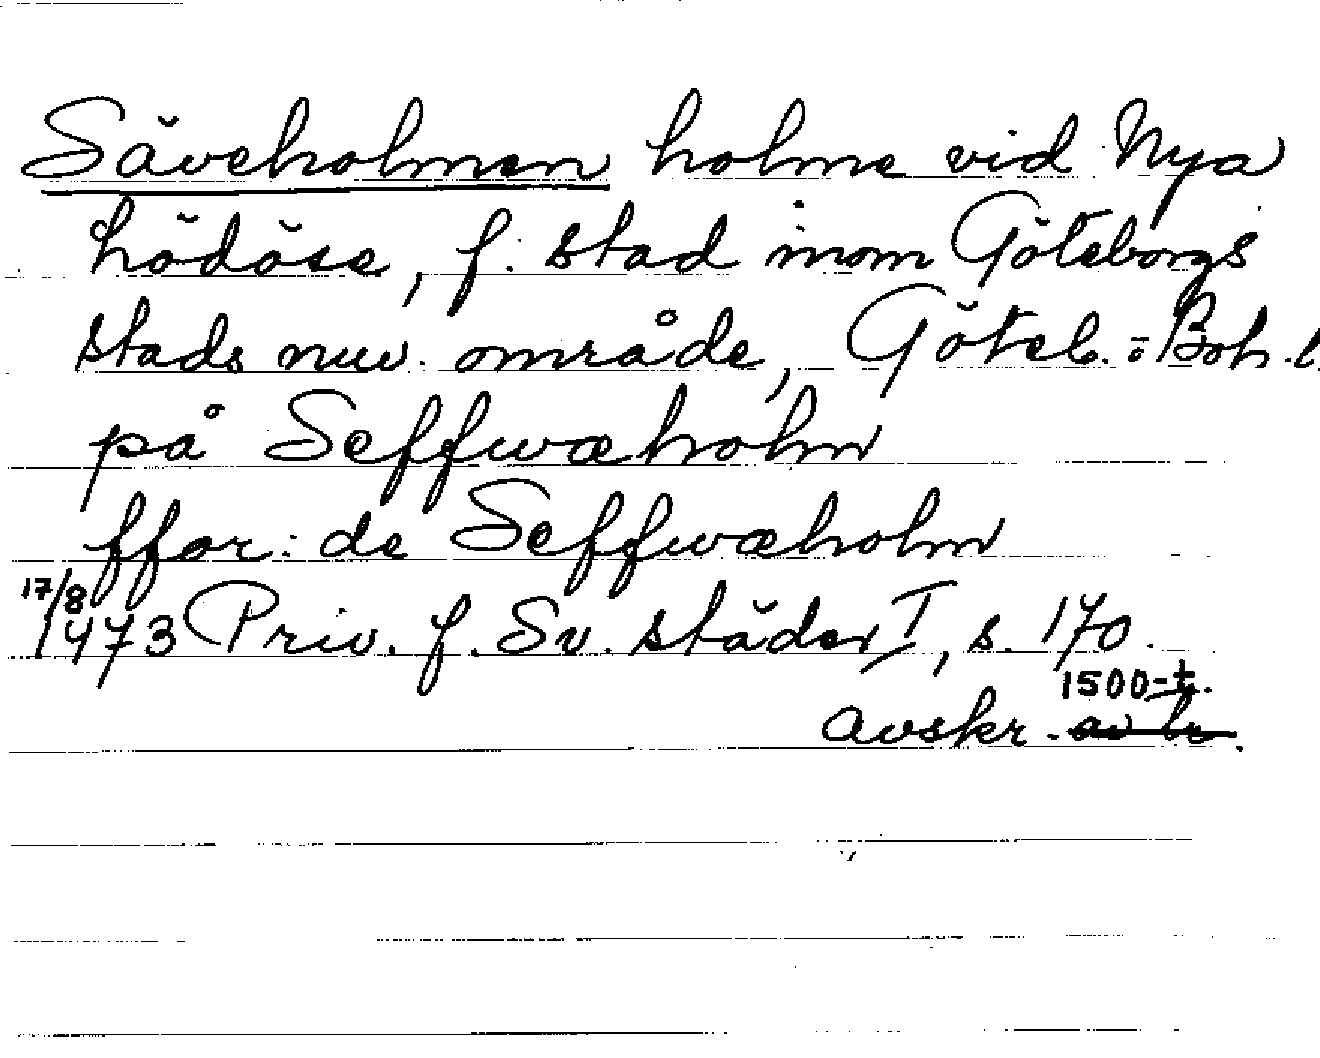 Säveholmen holme vid Nya
Lödöse, f. stad inom Göteborgs
stads nuv. område, Göteb. o Boh. l
på Seffwæholm
ffor: de Seffwæholm
17/8
1473 Priv. f. Sv. städer I, s. 170.
1500-t.
avskr. av br.